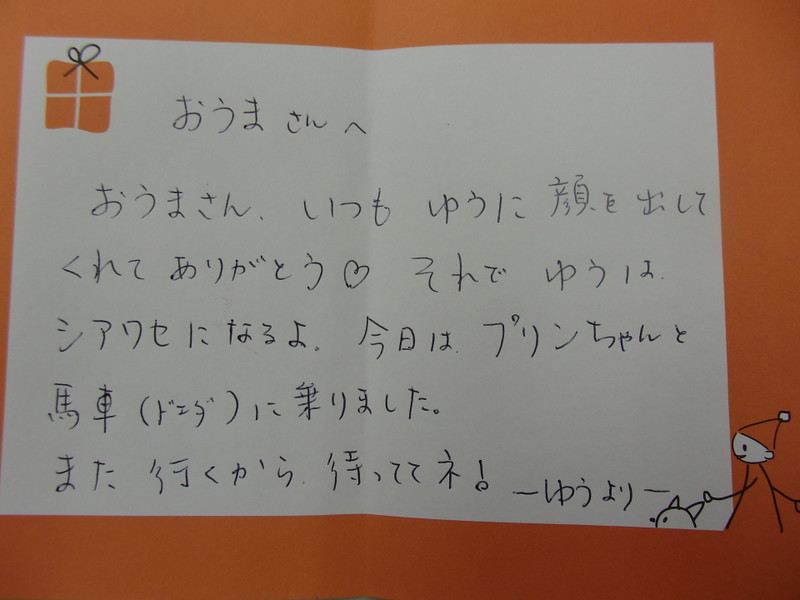 おうまさんへ
おうまさん、いつも ゆうに 顔を出して
くれて ありがとう♡ それで ゆうは、
シアワセになるよ。今日は、プリンちゃんと
馬車(ドエダ)に乗りました。
また 行くから、待っててネ!
ーゆうよりー